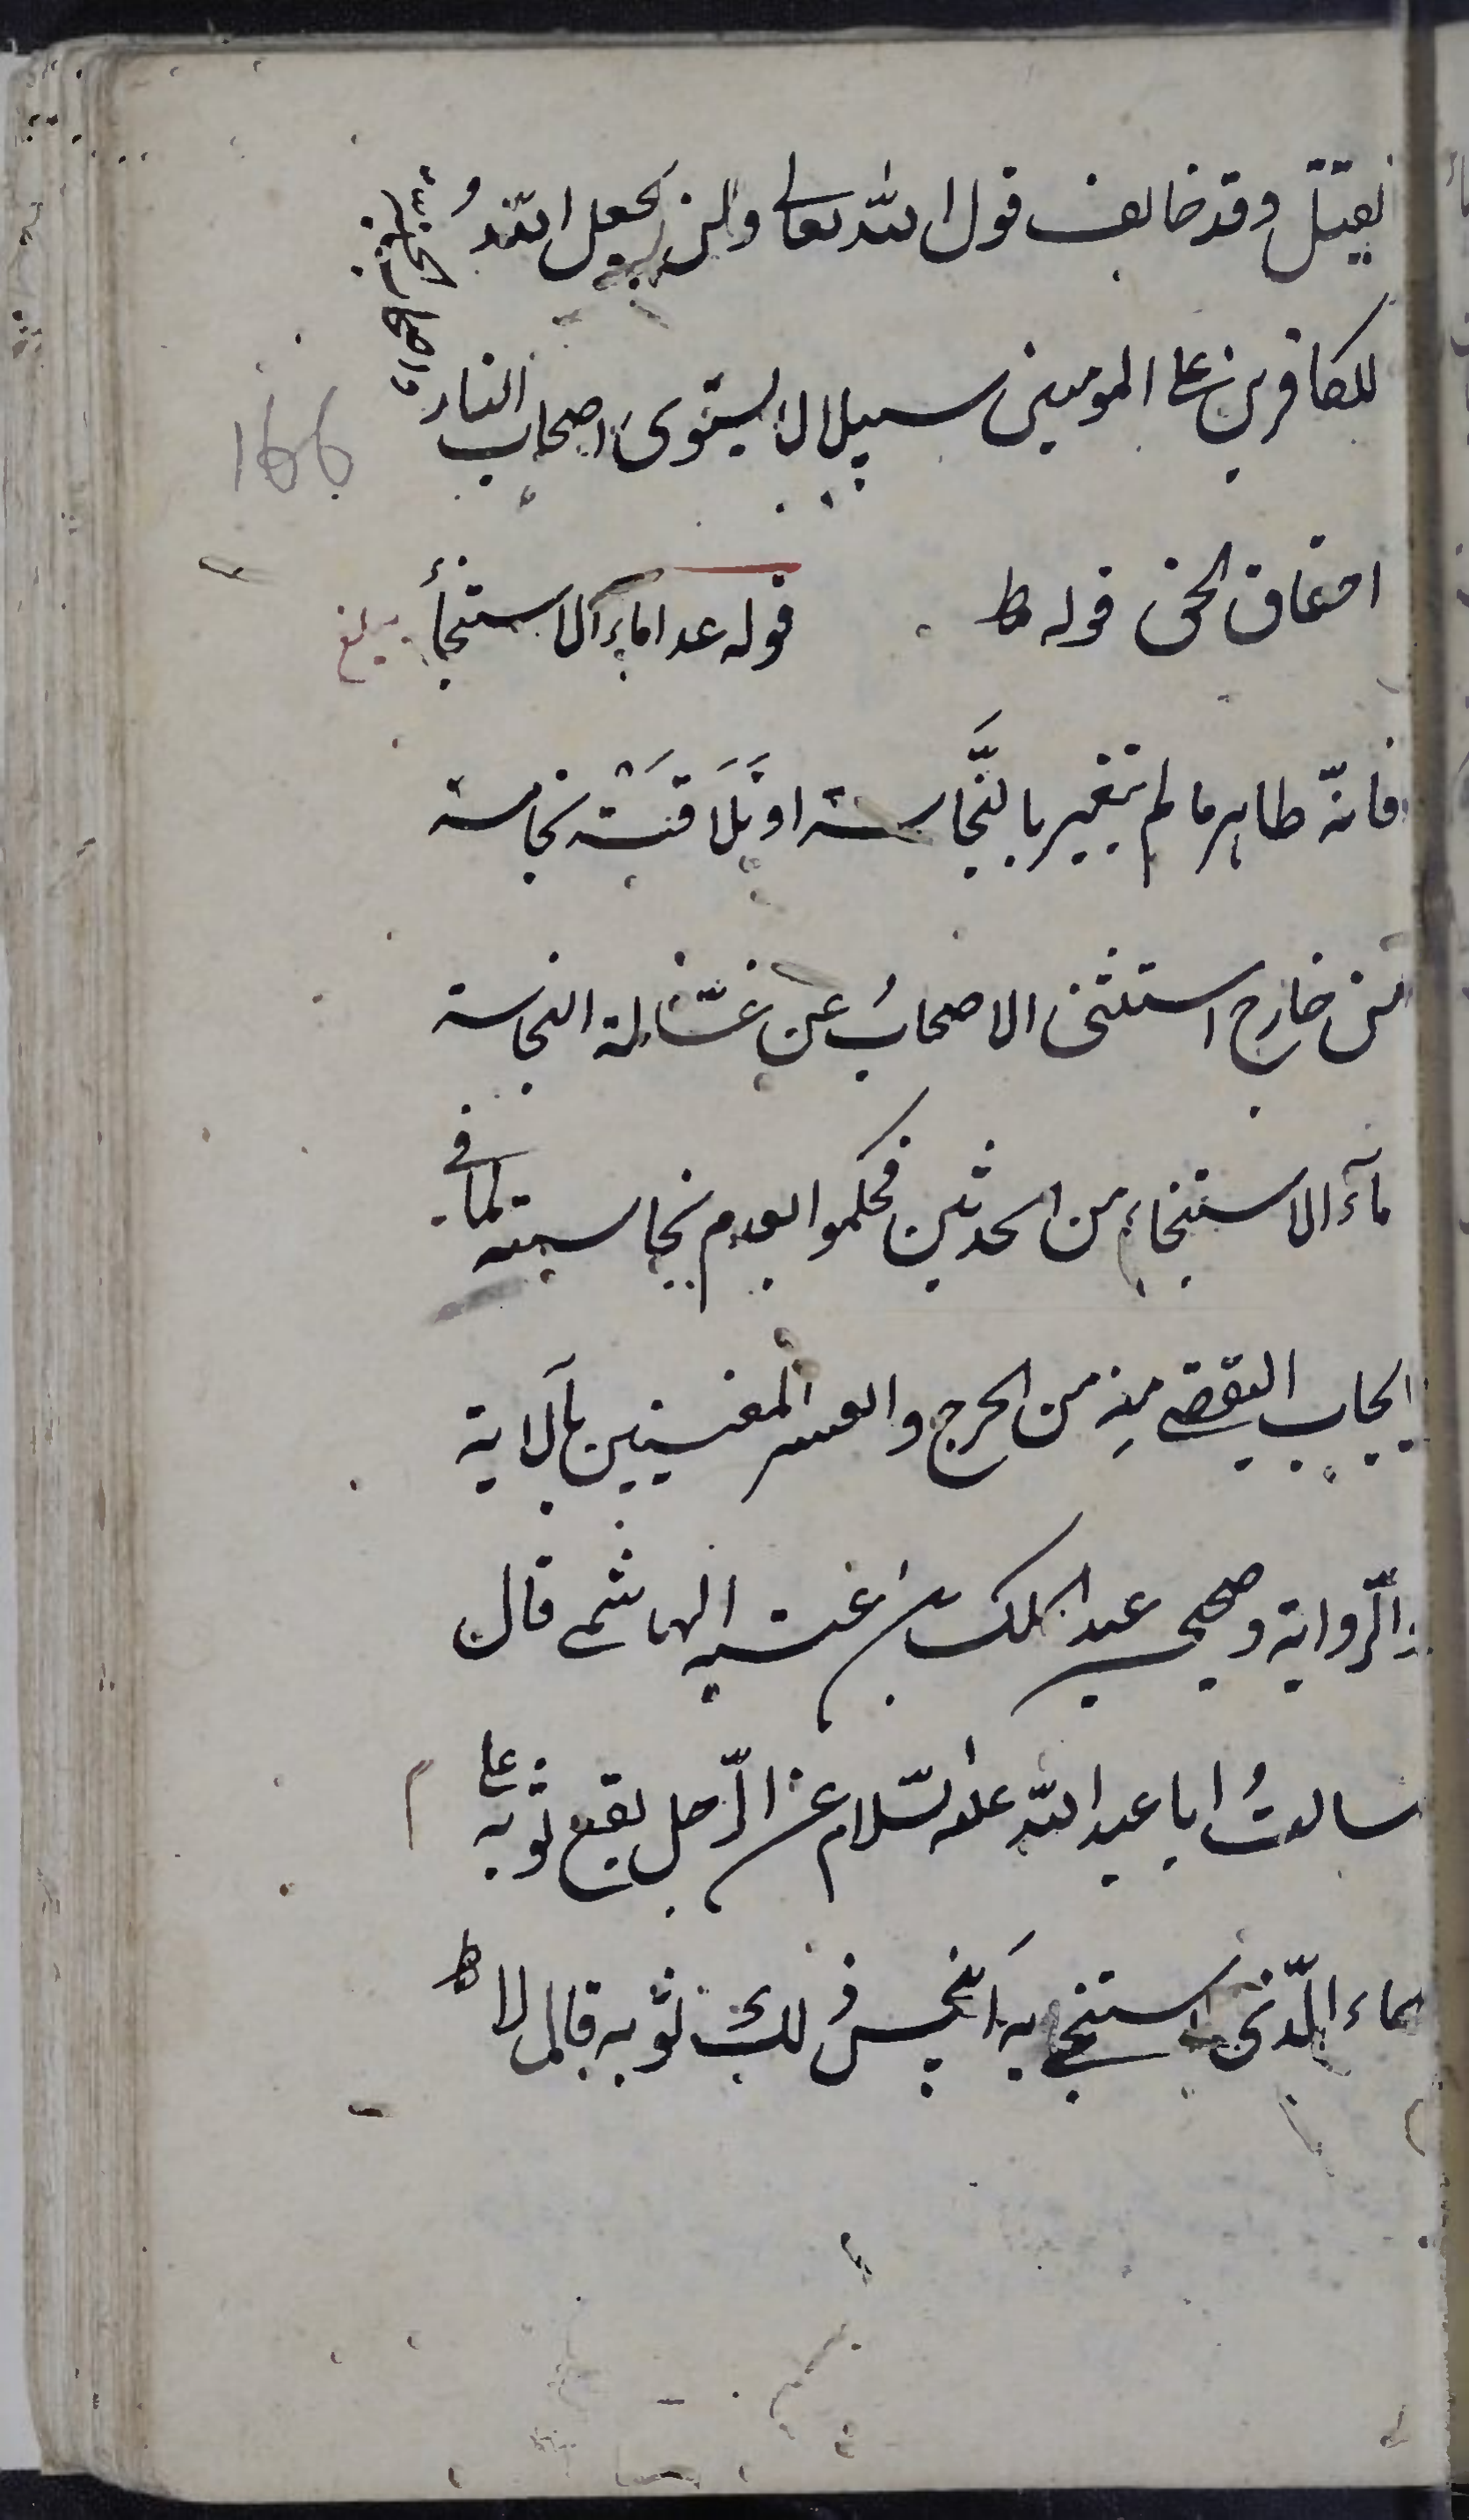 يقتل وقد خالف قول الله تعالى ولن يجعل اللهُ
للكافرين على المومنين سبيلا لا يستوى اصحاب النار
واصحاب الجنة
166
احقاق الحق قوله ط
قوله عدا ماء الاستنجأ
بلغ
فانّه طاهر ما لم يتغير بالنَّجاسة او تَلَاقَتْه نجاسة
من خارج استثنى الاصحابُ عن غسّالة النجاسة
مآء الاستنجاء من الحدثين فحكموا بعدم نجاسته لما فى
ايجاب التقصى منِه من الحرج والعسر المنفيين بالآية
والرّواية وصحيح عبد الملك بن عتبه الهاشمى قال
سالتُ ابا عبد اللّه عليه السّلام عن الرّجل يقع ثوبه على
الماء الّذى استنجى به أينجس ذلك ثوبه قال لا ط